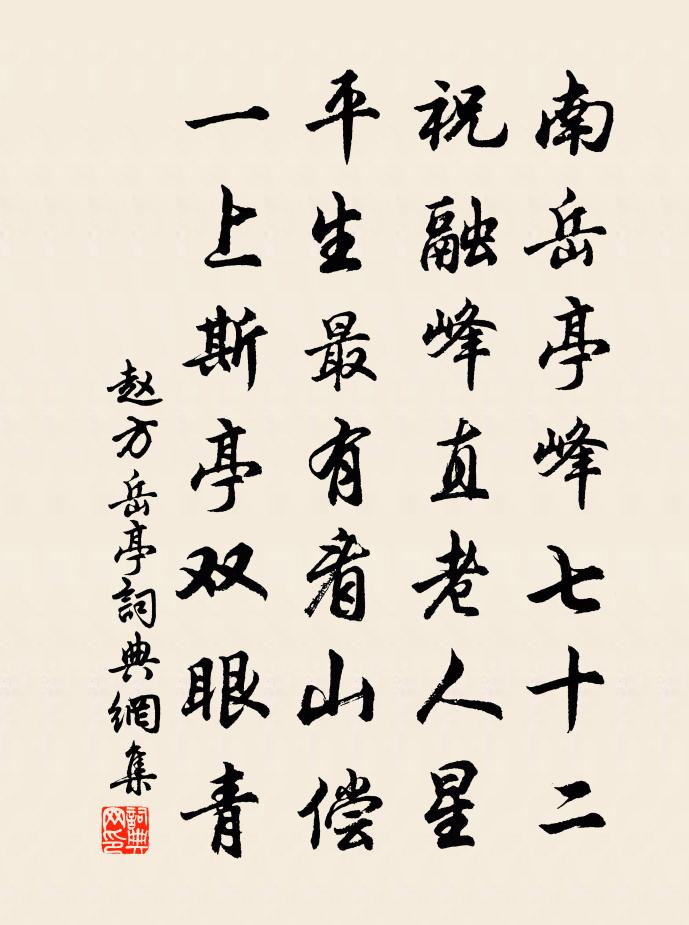 南岳亭峰七十二
祝融峰直老人星
平生最有看山偿
一上斯亭双眼青
赵方岳亭詞典網集
詞典网印